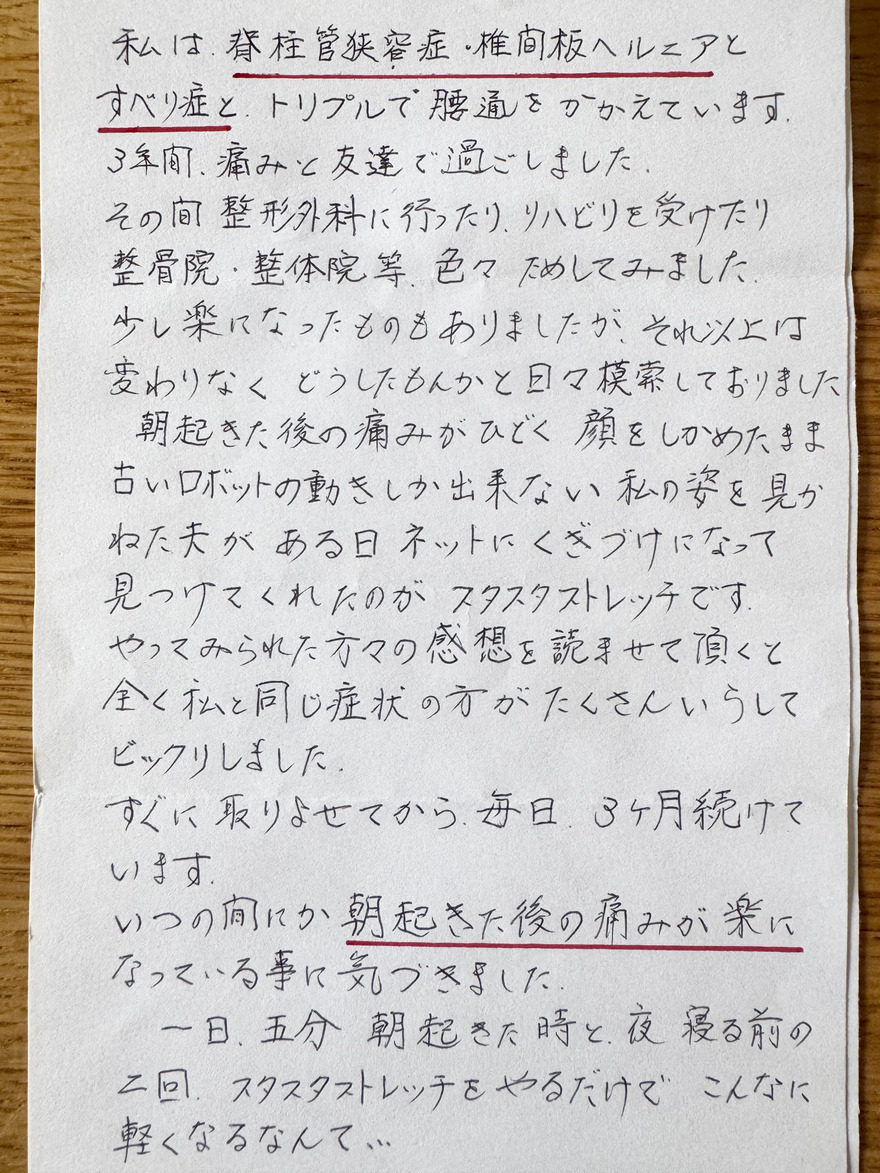 私は.脊柱管狭窄症・椎間板ヘルニアと
すべり症と.トリプルで腰通をかかえています.
3年間.痛みと友達で過ごしました.
その間 整形外科に行ったり.リハビリを受けたり
整骨院・整体院等.色々 ためしてみました.
少し楽になったものもありましたが.それ以上は
変わりなく どうしたもんかと日々模索しておりました
朝起きた後の痛みがひどく 顔をしかめたまま
古いロボットの動きしか出来ない 私の姿を見か
ねた夫が ある日 ネットにくぎづけになって
見つけてくれたのが スタスタストレッチです.
やってみられた方々の感想を読ませて頂くと
全く私と同じ症状の方がたくさんいらして
ビックリしました.
すぐに取りよせてから.毎日.3ヶ月続けて
います.
いつの間にか 朝起きた後の痛みが楽に
なっている事に気づきました.
一日.五分 朝起きた時と.夜 寝る前の
二回.スタスタストレッチをやるだけで こんなに
軽くなるなんて…